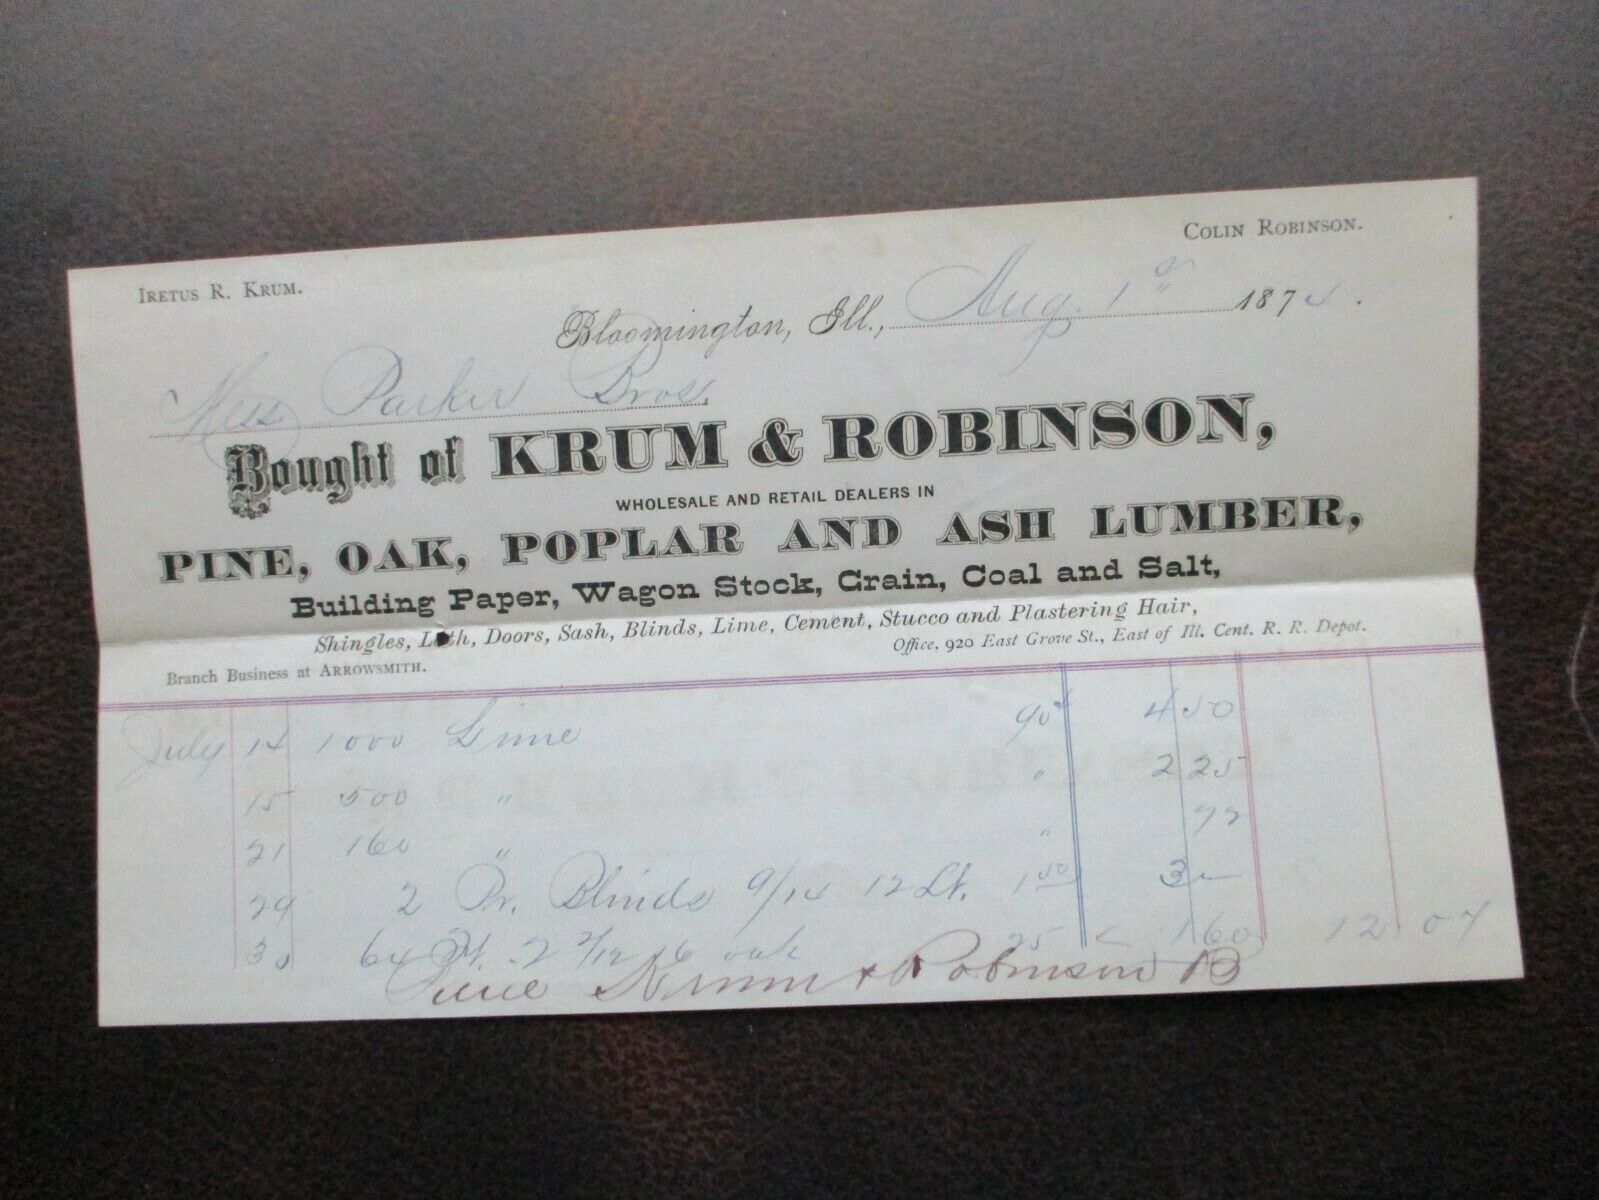 IRETUS R. KRUM.
COLIN ROBINSON.
Bloomington, Ill., Aug. 1st 1874.
Mess. Parker Bros.
Bought of KRUM & ROBINSON,
WHOLESALE AND RETAIL DEALERS IN
PINE, OAK, POPLAR AND ASH LUMBER,
Building Paper, Wagon Stock, Grain, Coal and Salt,
Shingles, Lath, Doors, Sash, Blinds, Lime, Cement, Stucco and Plastering Hair,
Branch Business at ARROWSMITH.
Office, 920 East Grove St., East of Ill. Cent. R. R. Depot.
July 14 1000 Lime 90 4 50
15 500 " " 2 25
21 160 " " 72
29 2 Pr. Blinds 9/14 12 Lt. 1 50 3 —
30 64 ft. 2 2/12 16 oak 25 1 60 12 07
Krum & Robinson B